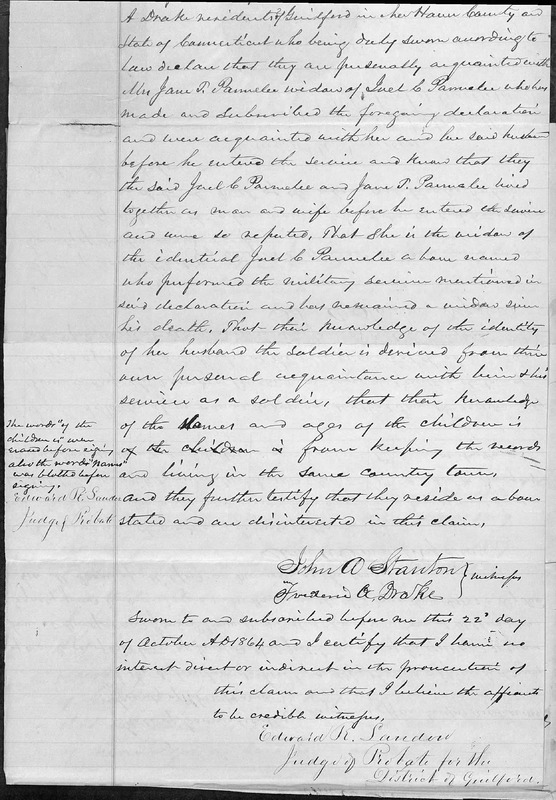 A Drake residents of Guilford in New Haven County and
State of Connecticut who being duly sworn according to
law declare that they are personally acquainted with
Mrs Jane T. Parmelee widow of Joel C Parmelee who has
made and subscribed the foregoing declaration
and were acquainted with her and her said husband
before he entered the service and know that they
the said Joel C Parmelee and Jane T. Parmelee lived
together as man and wife before he entered the service
and were so reputed, That she is the widow of
the identical Joel C Parmelee above named
who performed the military service mentioned in
said declaration and has remained a widow since
his death, That their knowledge of the identity
of her husband the soldier is derived from their
own personal acquaintance with him & his
service as a soldier, that their knowledge
of the Names and ages of the children is
of the children is from keeping the records
and living in the same country town
and they further testify that they reside as above
stated and are disinterested in this claim,
The words "of the
children is" were
erased before signing
also the word "Names"
was blotted before
signing.
Edward R. Landon
Judge of Probate
John A Stanton } witnesses
Frederic A. Drake
Sworn to and subscribed before me this 22d day
of October AD 1864 and I certify that I have no
interest direct or indirect in the prosecution of
this claim and that I believe the affiants
to be credible witnesses,
Edward R. Landon
Judge of Probate for the
District of Guilford.